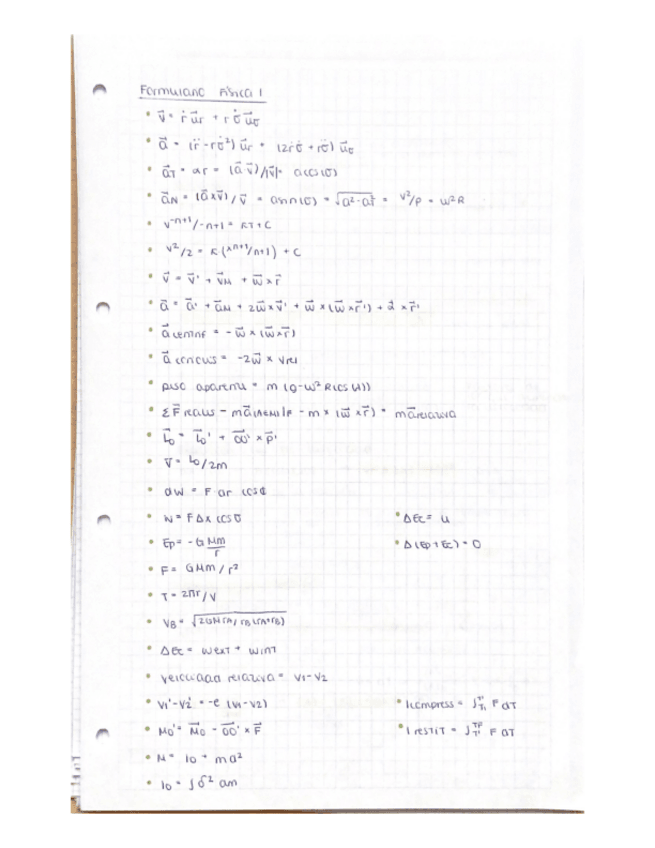 Formulario Física 1
• v⃗ = ṙ u⃗r + r σ̇ u⃗σ
• a⃗ = (r̈ - rσ̇²) u⃗r = (2ṙσ̇ + rσ̈) u⃗σ
• a⃗T = αr = (a⃗ v⃗)/|v⃗| = a cos(σ)
• a⃗N = (a⃗ x v⃗)/v⃗ = a sin(σ) = √a² - aT² = v²/ρ = ω²R
• v⁻ⁿ⁺¹/-n+1 = KT + C
• v²/2 = K (xⁿ⁺¹/n+1) + C
• v⃗ = v⃗' + v⃗M + w⃗ x r⃗
• a⃗ = a⃗' + a⃗M + 2w⃗ x v⃗' + w⃗ x (w⃗ x r⃗') + α⃗ x r⃗'
• a⃗ centrif = - w⃗ x (w⃗ x r⃗)
• a⃗ coriolis = -2w⃗ x vrel
• peso aparente = m (g - ω² R cos(λ))
• ΣF⃗ reales - m a⃗ - m x (w⃗ x r⃗) = m a⃗ relativa
• L⃗o = L⃗o' + OO⃗' x P⃗'
• v⃗ = Lo/2m
• dW = F dr cosφ
• W = F Δx cos σ • ΔEc = W
• Ep = - G Mm/r • Δ(Ep + Ec) = 0
• F = GMm / r²
• T = 2πr/v
• VB = √2GM rA/rB(rA+rB)
• ΔEc = Wext + Wint
• velocidad relativa = v1 - v2
• v1' - v2' = -e (v1 - v2) • Icompress = ∫ F dT
• Mo' = M⃗o - OO⃗' x F⃗ • I restit = ∫ F dT
• M = Io + md²
• Io = ∫ δ² dm